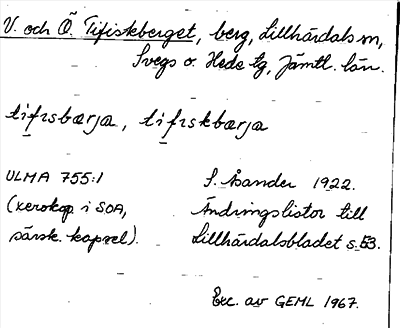 V. och Ö. Tifiskberget, berg, Lillhärdals sn,
Svegs o. Hede tg, Jämtl. län.
tifɪsbærja, tifɪskbærja
ULMA 755:1 S. Åsander 1922.
(xerokop. i SOA, Ändringslistor till
särsk. kapsel). Lillhärdalsbladet s. 53.
Exc. av GEML 1967.